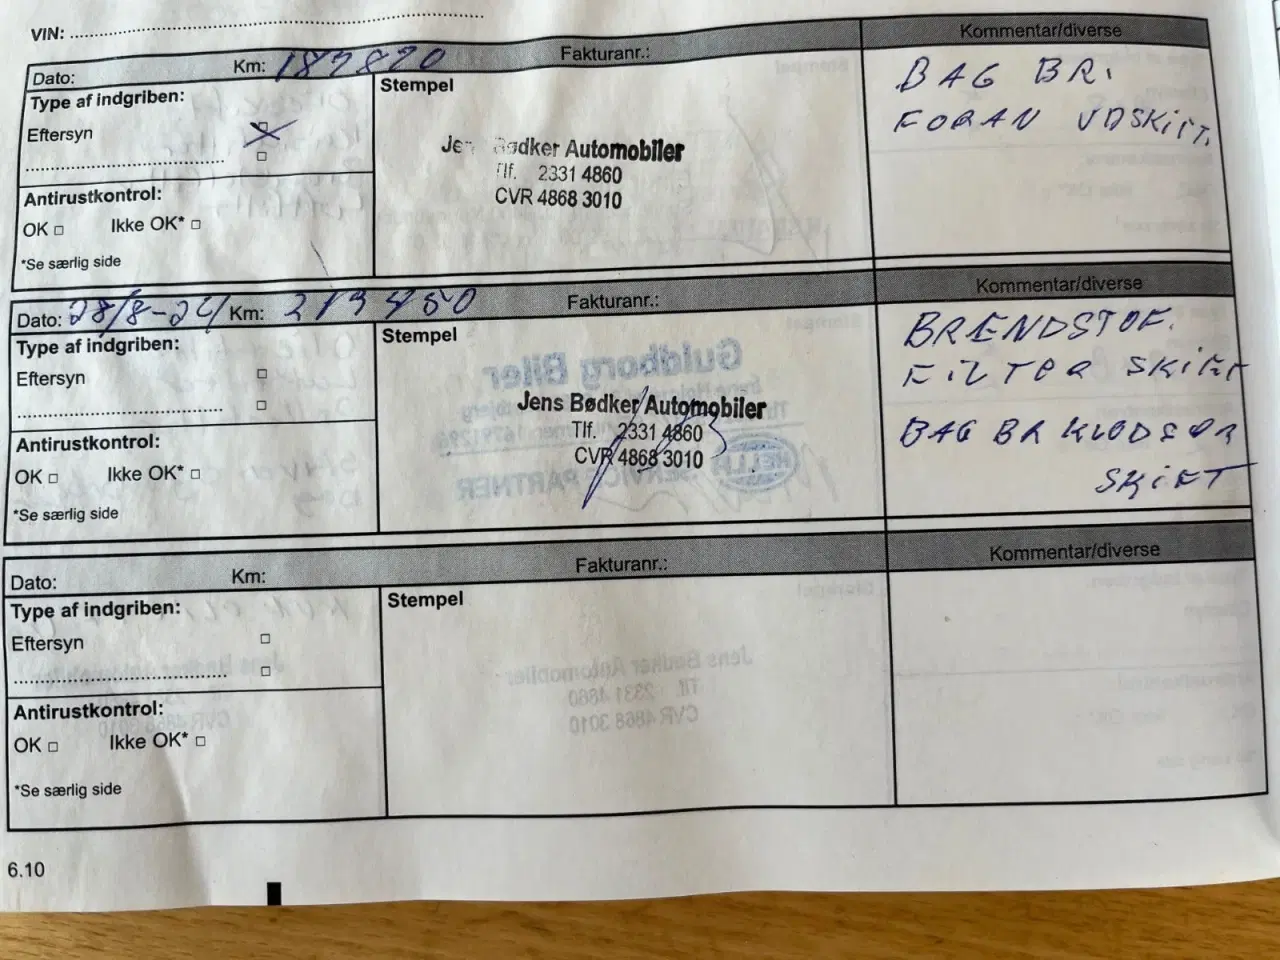 VIN:
Dato: Km: 187820 Fakturanr.: Kommentar/diverse
Type af indgriben:
Eftersyn
Stempel
Jens Bødker Automobiler
Tlf. 2331 4860
CVR 4868 3010
BAG BR.
FORAN UDSKIFT.
Antirustkontrol:
OK Ikke OK*
*Se særlig side
Dato: 28/8-24 Km: 213450 Fakturanr.: Kommentar/diverse
Type af indgriben:
Eftersyn
Stempel
Jens Bødker Automobiler
Tlf. 2331 4860
CVR 4868 3010
BRENDSTOF.
FILTER SKIFT
BAG BR KLODSER
SKIFT
Antirustkontrol:
OK Ikke OK*
*Se særlig side
Dato: Km: Fakturanr.: Kommentar/diverse
Type af indgriben:
Eftersyn
Stempel
Antirustkontrol:
OK Ikke OK*
*Se særlig side
6.10